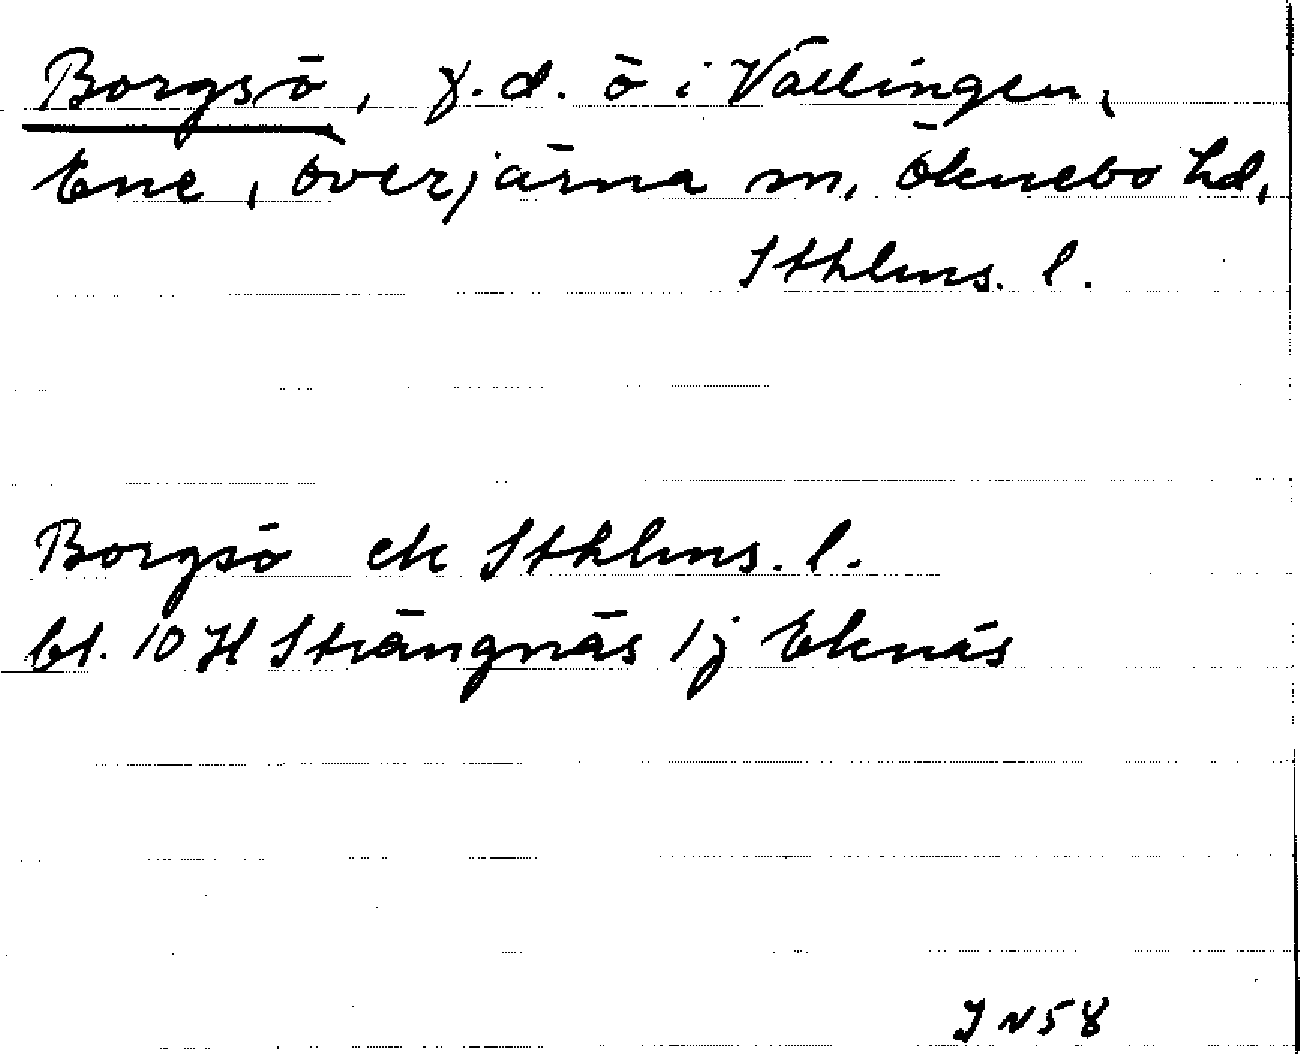 Borgsö, f.d. ö i Vällingen,
Ene, Överjärna sn, Öknebo hd,
Sthlms. l.
Borgsö ek Sthlms. l.
bl. 10 H Strängnäs 1j Eknäs
IN58